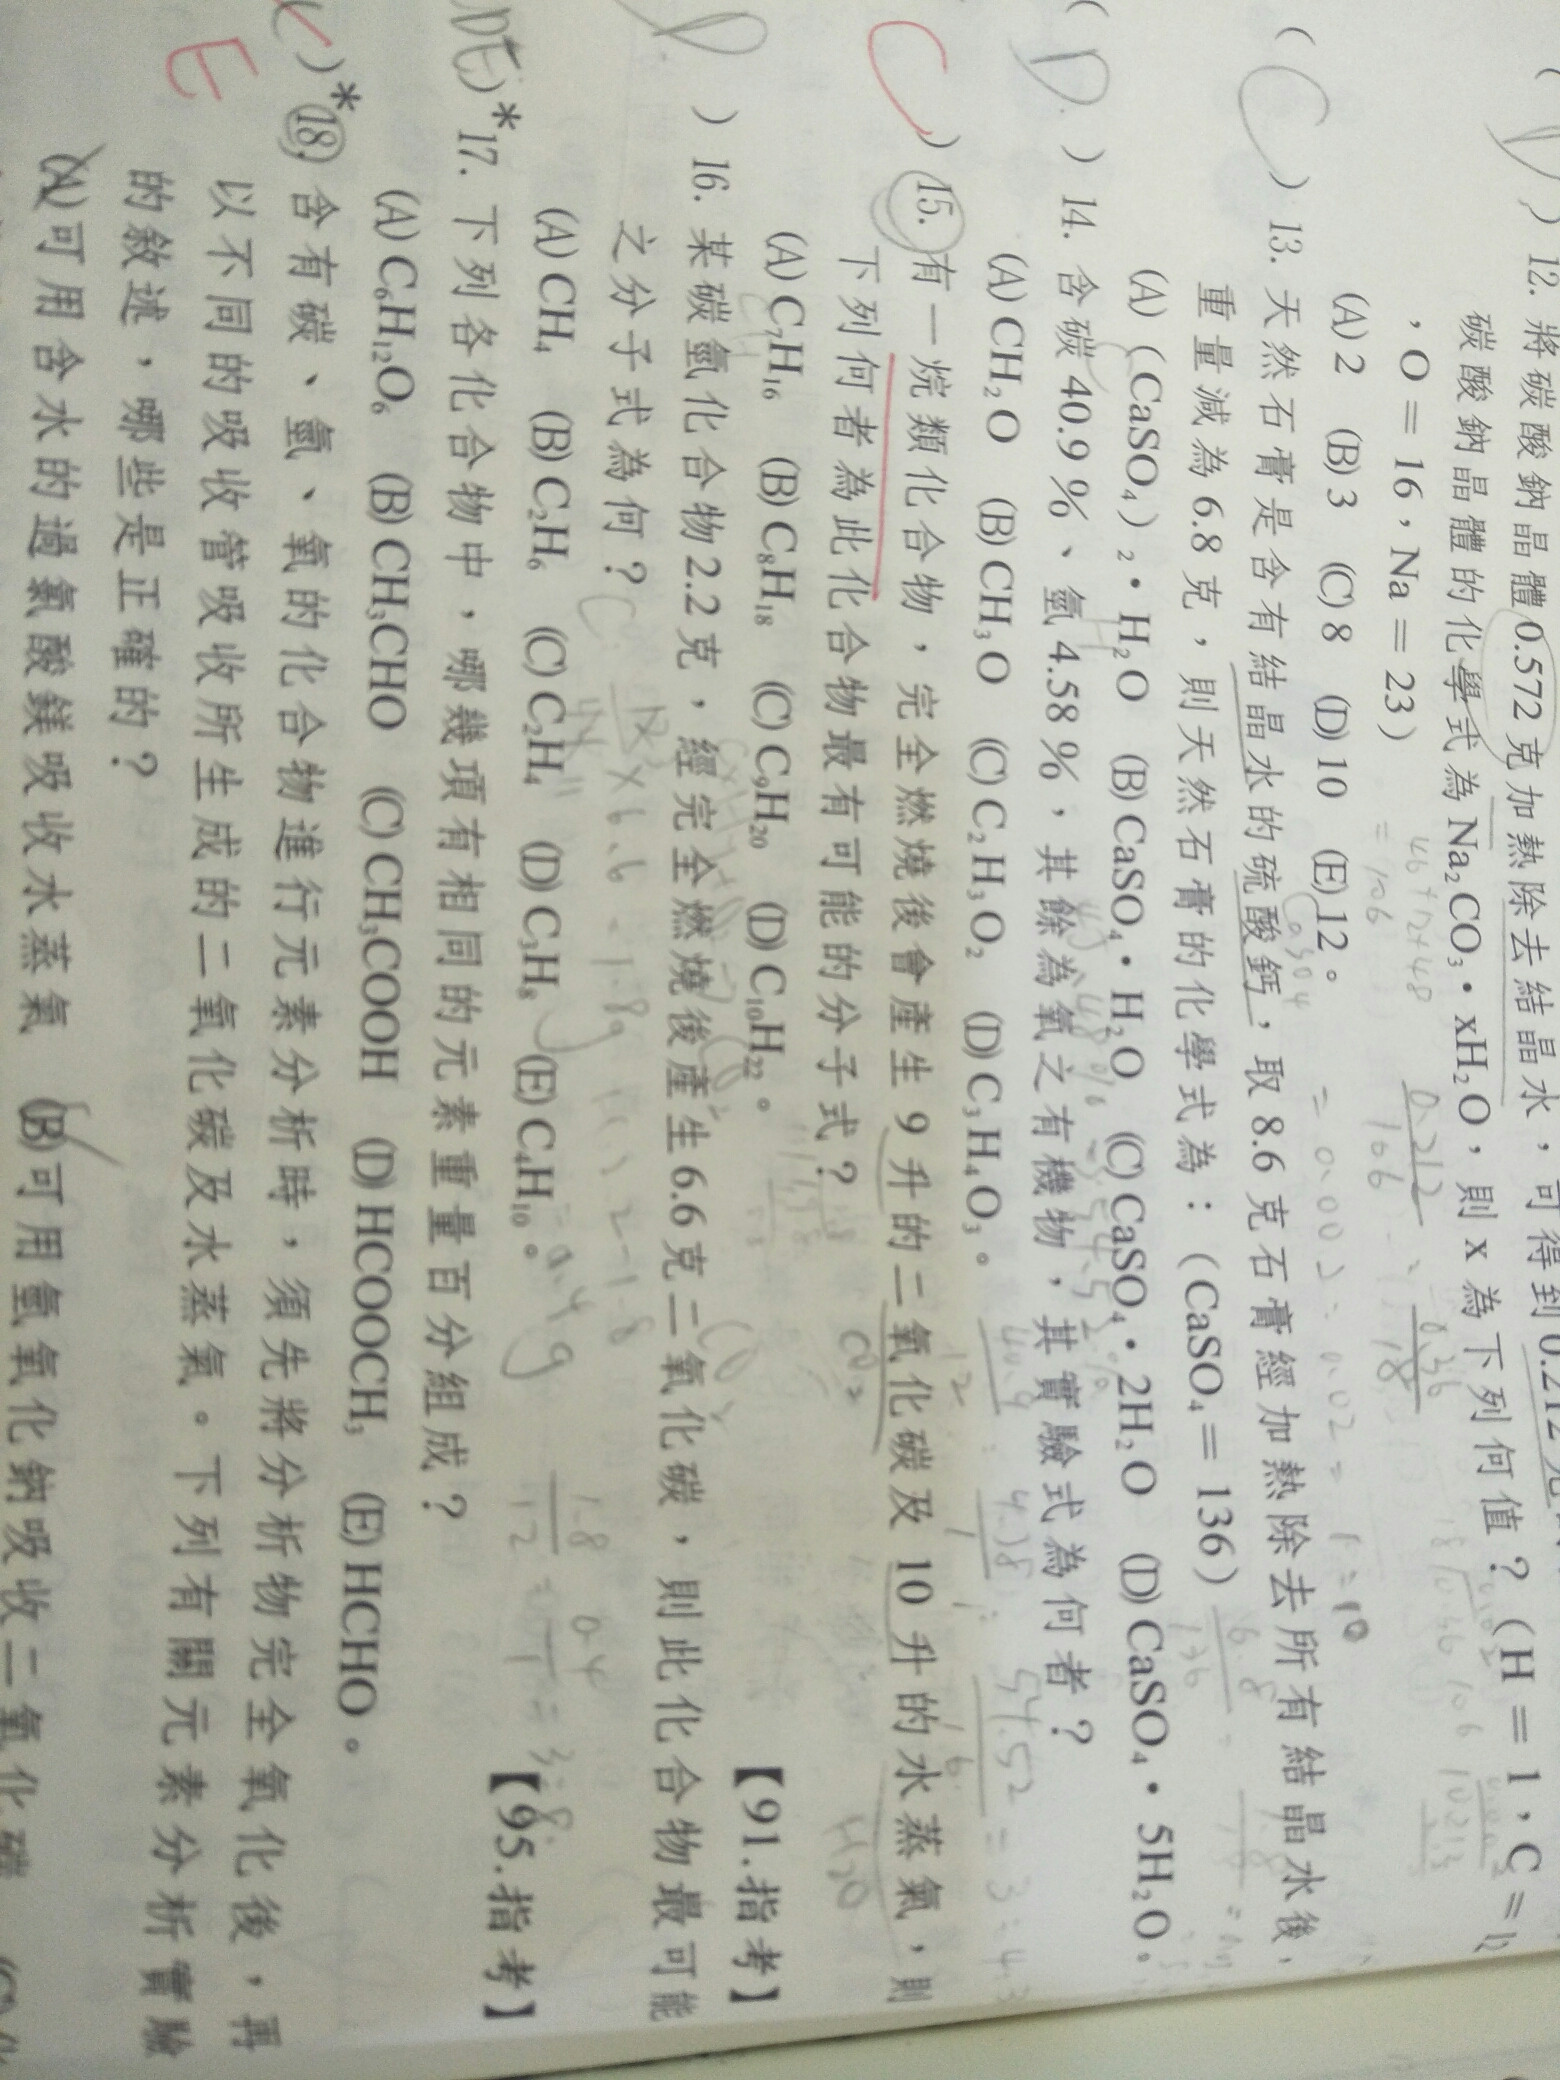 12. 將碳酸鈉晶體0.572克加熱除去結晶水，可得到0.212
碳酸鈉晶體的化學式為Na₂CO₃・xH₂O，則x為下列何值？（H＝1，C＝12
，O＝16，Na＝23）
(A) 2 (B) 3 (C) 8 (D) 10 (E) 12。
(C) 13. 天然石膏是含有結晶水的硫酸鈣，取8.6克石膏經加熱除去所有結晶水後，
重量減為6.8克，則天然石膏的化學式為：（CaSO₄＝136）
(A)（CaSO₄）₂・H₂O (B) CaSO₄・H₂O (C) CaSO₄・2H₂O (D) CaSO₄・5H₂O。
(D) 14. 含碳40.9％、氫4.58％，其餘為氧之有機物，其實驗式為何者？
(A) CH₂O (B) CH₃O (C) C₂H₃O₂ (D) C₃H₄O₃。
(C) 15. 有一烷類化合物，完全燃燒後會產生9升的二氧化碳及10升的水蒸氣，則
下列何者為此化合物最有可能的分子式？
CO₂ H₂O
(A) C₇H₁₆ (B) C₈H₁₈ (C) C₉H₂₀ (D) C₁₀H₂₂。 【91.指考】
(D) 16. 某碳氫化合物2.2克，經完全燃燒後產生6.6克二氧化碳，則此化合物最可能
之分子式為何？
(A) CH₄ (B) C₂H₆ (C) C₂H₄ (D) C₃H₈ (E) C₄H₁₀。 【95.指考】
DE)*17. 下列各化合物中，哪幾項有相同的元素重量百分組成？
(A) C₆H₁₂O₆ (B) CH₃CHO (C) CH₃COOH (D) HCOOCH₃ (E) HCHO。
)*18. 含有碳、氫、氧的化合物進行元素分析時，須先將分析物完全氧化後，再
以不同的吸收管吸收所生成的二氧化碳及水蒸氣。下列有關元素分析實驗
E
的敘述，哪些是正確的？
(A)可用含水的過氯酸鎂吸收水蒸氣 (B)可用氫氧化鈉吸收二氧化碳